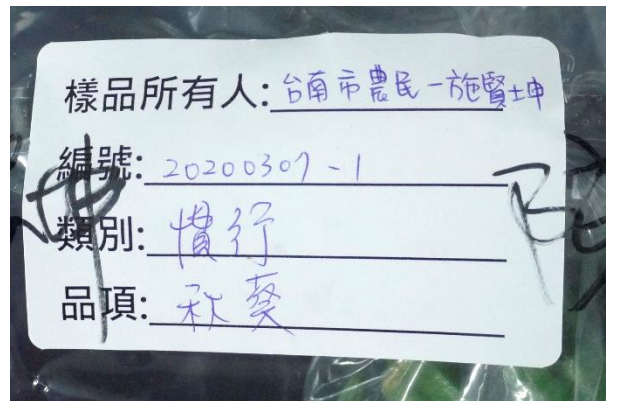 樣品所有人:台南市農民-施賢坤
編號:20200307-1
類別:慣行
品項:秋葵